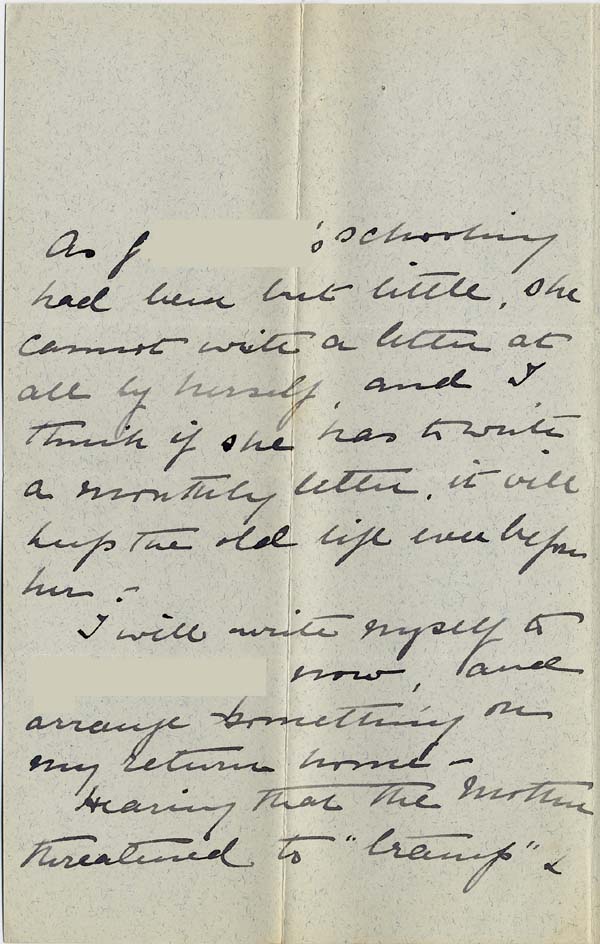 As J 's schooling
had been but little, she
cannot write a letter at
all by herself, and I
think if she has to write
a monthly letter, it will
keep the old life ever before
her. -
I will write myself to
now, and
arrange something on
my return home -
Hearing that the Mother
threatened to "tramp" &